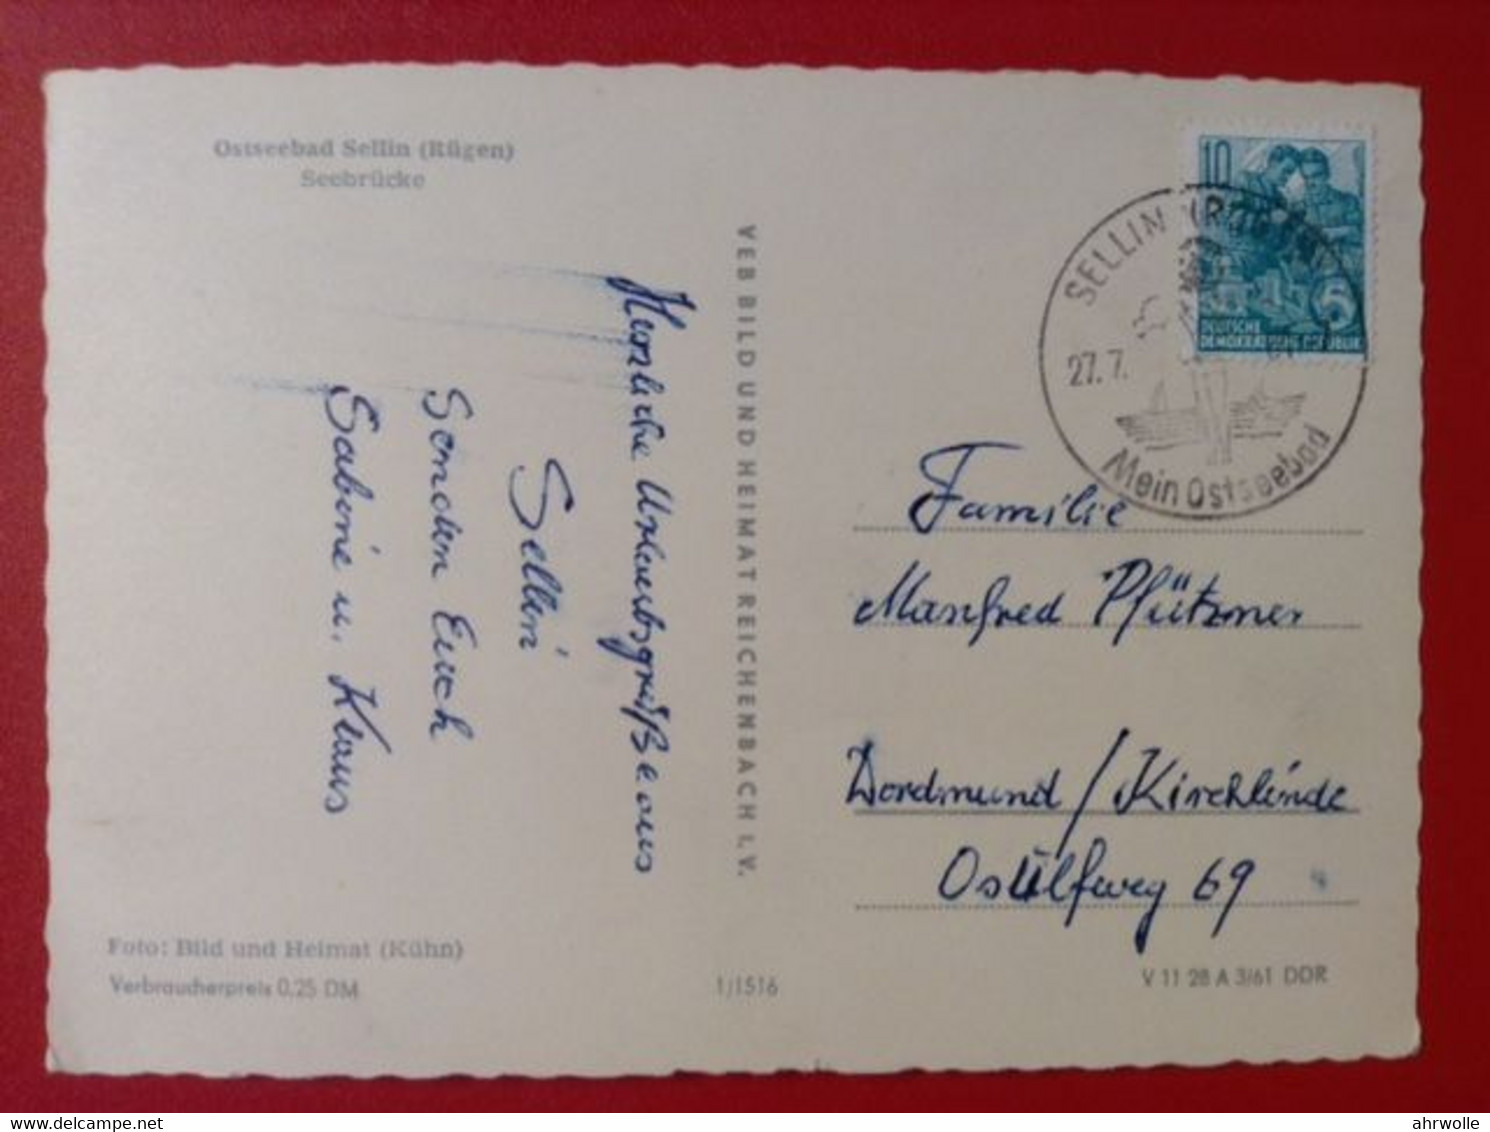 Ostseebad Sellin (Rügen)
Seebrücke
Herzliche Urlaubsgrüße aus
Sellin
Senden Euch
Sabine u. Klaus
VEB BILD UND HEIMAT REICHENBACH I. V.
10
5
DEUTSCHE
DEMOKRATISCHE REPUBLIK
SELLIN (RÜGEN)
27. 7.
Mein Ostseebad
Familie
Manfred Pfützner
Dordmund / Kirchlinde
69
Foto: Bild und Heimat (Kühn)
Verbraucherpreis 0,25 DM
1/1516
V 11 28 A 3/61 DDR
ahrwolle